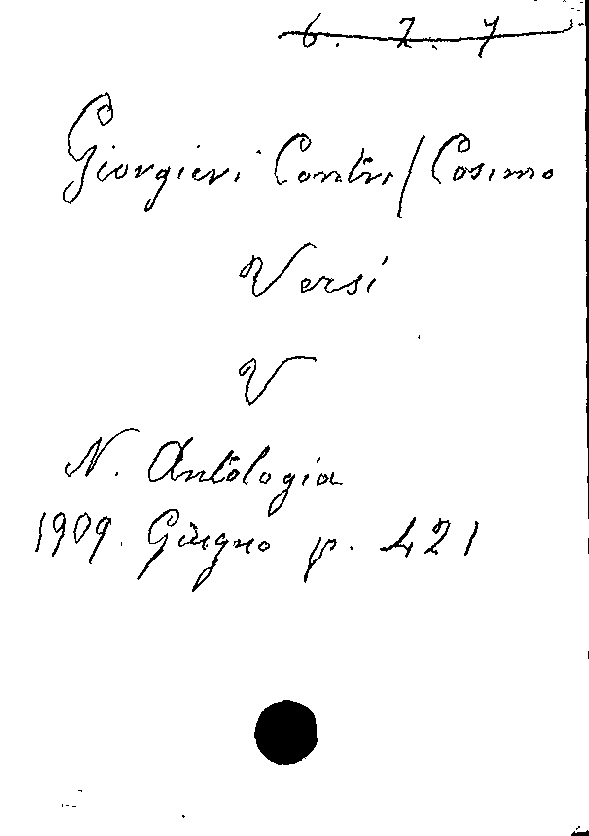 6. 7. 7
Giorgieri Contri/Cosimo
Versi
V
N. Antologia
1909. Giugno p. 421